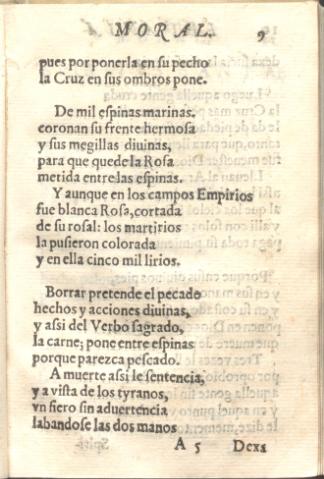 MORAL. 9
pues por ponerla en su pecho
la Cruz en sus ombros pone.
De mil espinas marinas.
coronan su frente hermosa
y sus megillas diuinas,
para que quede la Rosa
metida entre las espinas.
Y aunque en los campos Empirios
fue blanca Rosa, cortada
de su rosal: los martirios
la pusieron colorada
y en ella cinco mil lirios.
Borrar pretende el pecado
hechos y acciones diuinas,
y assi del Verbo sagrado,
la carne; pone entre espinas
porque parezca pescado.
A muerte assi le sentencia,
y a vista de los tyranos,
vn fiero sin aduertencia
labandose las dos manos
A 5 Dexa